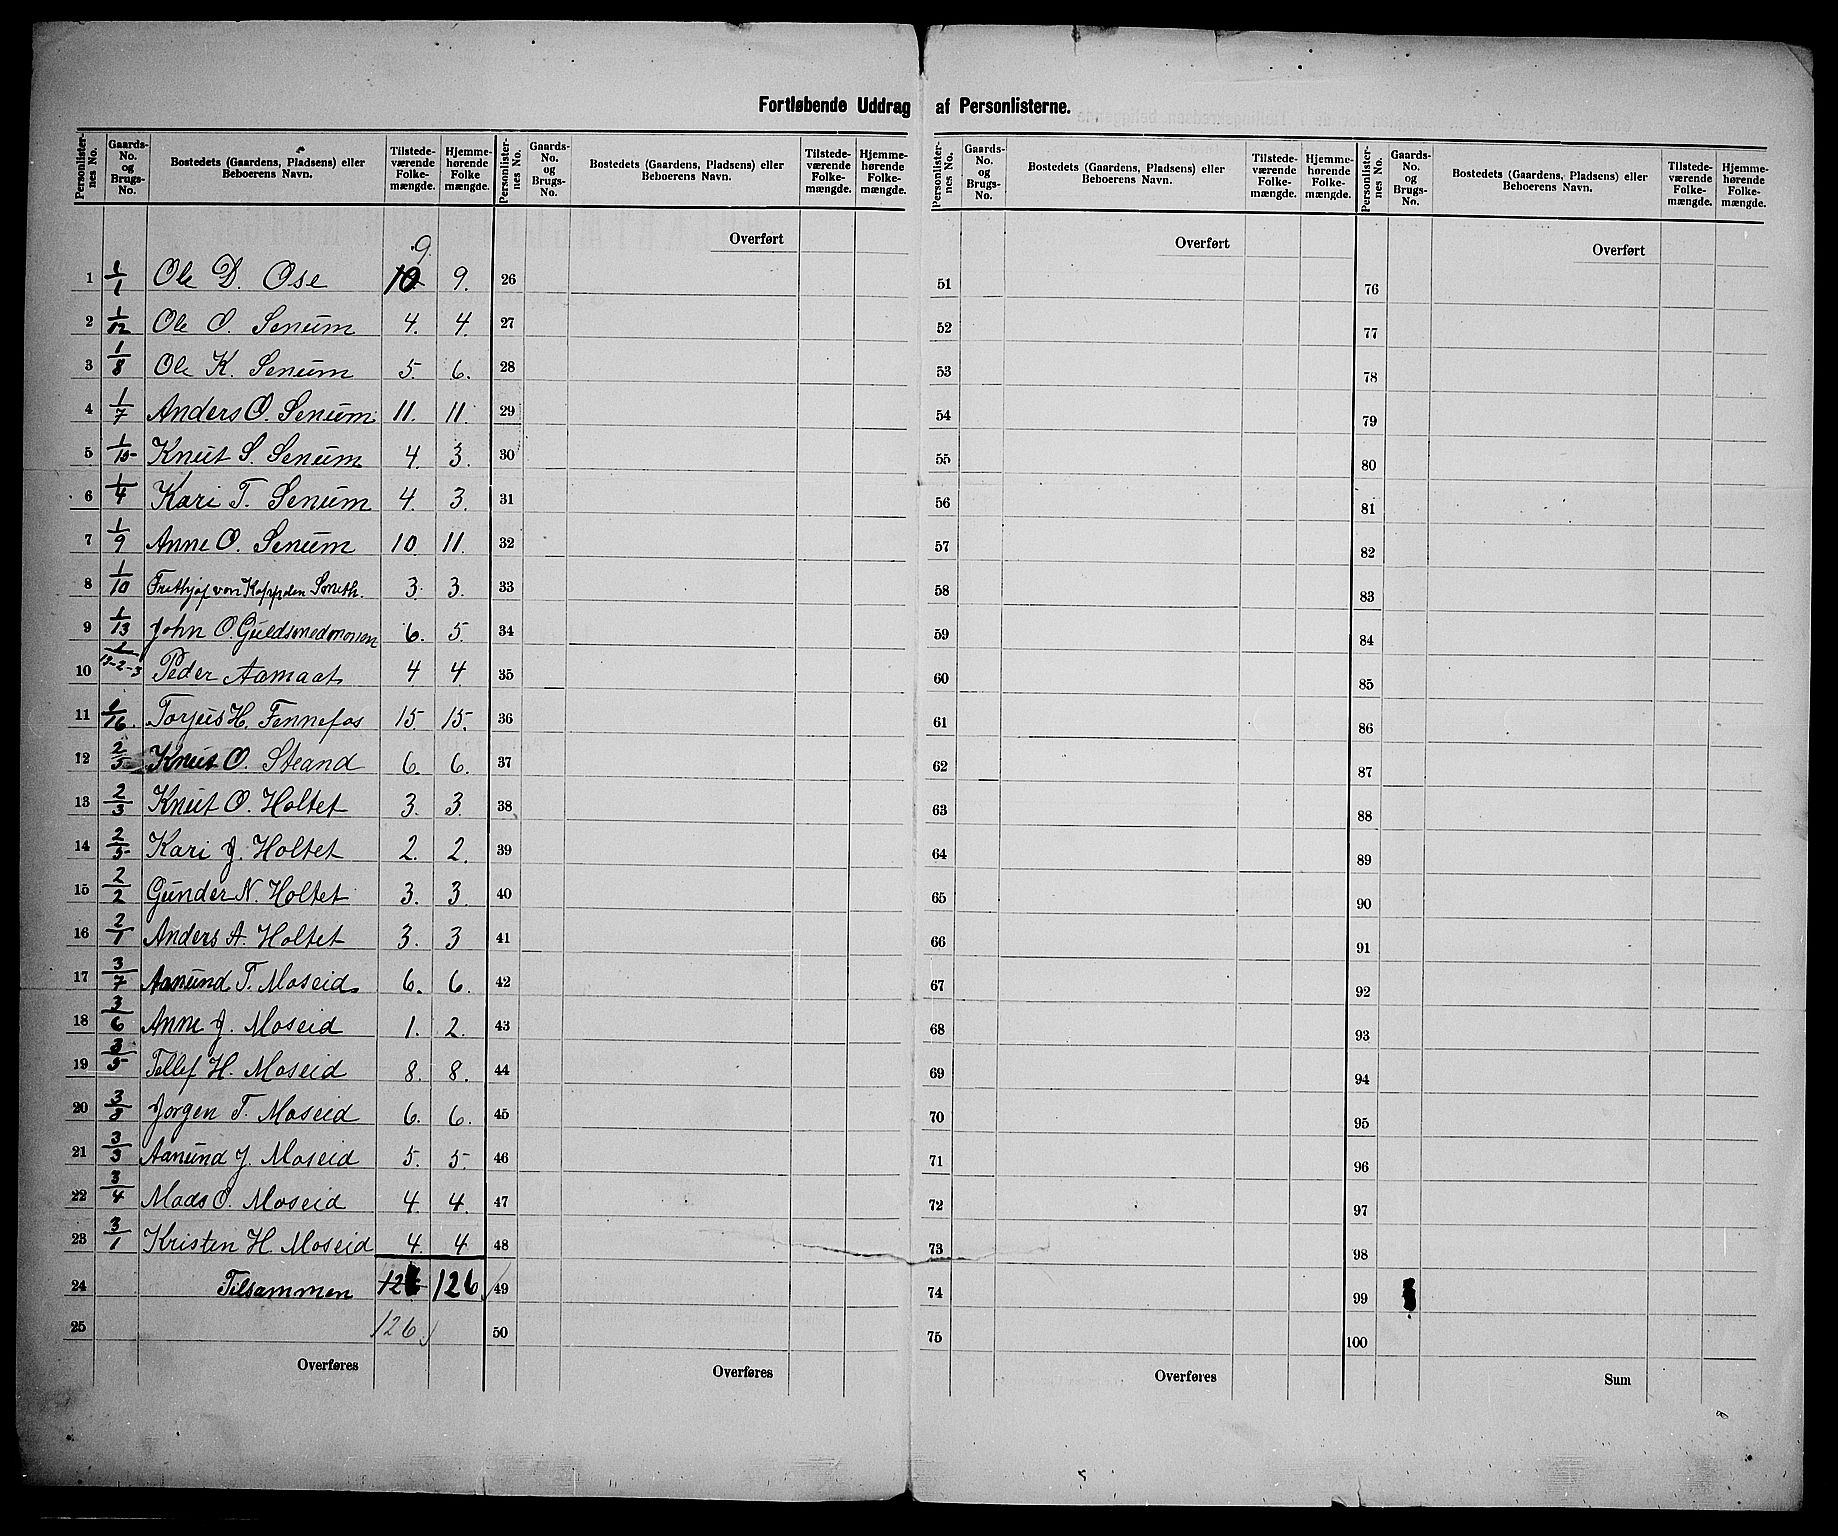 Fortløbende Uddrag af Personlisterne.
Personlisternes No. Gaards-No. og Brugs-No. Bostedets (Gaardens, Pladsens) eller Beboerens Navn. Tilstedeværende Folkemængde. Hjemmehørende Folkemængde.
Personlisternes No. Gaards-No. og Brugs-No. Bostedets (Gaardens, Pladsens) eller Beboerens Navn. Tilstedeværende Folkemængde. Hjemmehørende Folkemængde.
Personlisternes No. Gaards-No. og Brugs-No. Bostedets (Gaardens, Pladsens) eller Beboerens Navn. Tilstedeværende Folkemængde. Hjemmehørende Folkemængde.
Personlisternes No. Gaards-No. og Brugs-No. Bostedets (Gaardens, Pladsens) eller Beboerens Navn. Tilstedeværende Folkemængde. Hjemmehørende Folkemængde.
9. Overført Overført Overført
1 1/1 Ole D. Ose 10 9. 26 51 76
2 1/12 Ole O. Senum 4. 4. 27 52 77
3 1/8 Ole K. Senum 5. 6. 28 53 78
4 1/7 Anders O. Senum 11. 11. 29 54 79
5 1/15 Knut S. Senum 4. 3. 30 55 80
6 1/4 Kari T. Senum 4. 3. 31 56 81
7 1/9 Anne O. Senum 10. 11. 32 57 82
8 1/10 Frithjof von Kappden Smith. 3. 3. 33 58 83
9 1/13 John O. Guldsmedmoen 6. 5. 34 59 84
10 Peder Aamaat 4 4 35 60 85
11 1/16. Torjus H. Fennefos 15. 15. 36 61 86
12 2/5 Knut O. Strand 6. 6. 37 62 87
13 2/3 Knut O. Holtet 3. 3. 38 63 88
14 2/5 Kari J. Holtet 2. 2. 39 64 89
15 2/2 Gunder N. Holtet 3. 3. 40 65 90
16 2/1 Anders A. Holtet 3. 3 41 66 91
17 3/7 Aanund T. Moseid 6. 6. 42 67 92
18 3/6 Anne J. Moseid 1. 2. 43 68 93
19 3/5 Tellef H. Moseid 8. 8. 44 69 94
20 3/8 Jorgen T. Moseid 6. 6. 45 70 95
21 3/3 Aanund J. Moseid 5. 5. 46 71 96
22 3/4 Mads O. Moseid 4 4. 47 72 97
23 3/1 Kristen H. Moseid 4. 4 48 73 98
24 Tilsammen 126 49 74 99
25 126 50 75 100
Overføres Overføres Overføres Sum